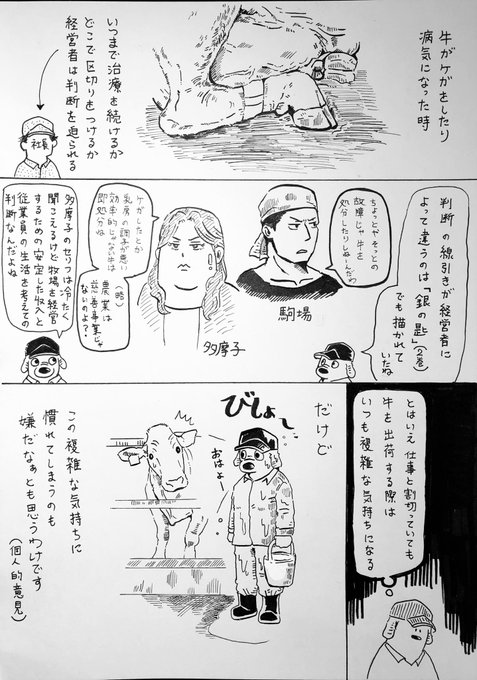 牛がケガをしたり
病気になった時
いつまで治療を続けるか
どこで区切りをつけるか
経営者は判断を迫られる
社長
判断の線引きが経営者に
よって違うのは「銀の匙」(2巻)
でも描かれて
いたね
ちょっとやそっとの
故障じゃ牛を
処分したりしねーんだわ
駒場
ケガしたとか
乳房の調子が悪い
効率的じゃない牛は
即処分ね
(略)
農業は
慈善事業じゃ
ないのよ?
多摩子
多摩子のセリフは冷たく
聞こえるけど牧場を経営
するための安定した収入と
従業員の生活を考えての
判断なんだよね
とはいえ仕事と割切っていても
牛を出荷する際は
いつも複雑な気持ちになる
だけど
びしょ〜
おはよー
この複雑な気持ちに
慣れてしまうのも
嫌だなぁとも思うわけです
(個人的意見)